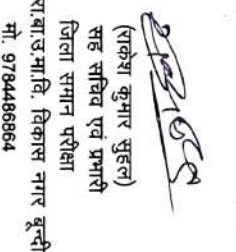 (राकेश कुमार मुहाल)
सह सचिव एवं प्रभारी
जिला समान परीक्षा
रा.बा.उ.मा.वि. विकास नगर बून्दी
मो. 9784486864